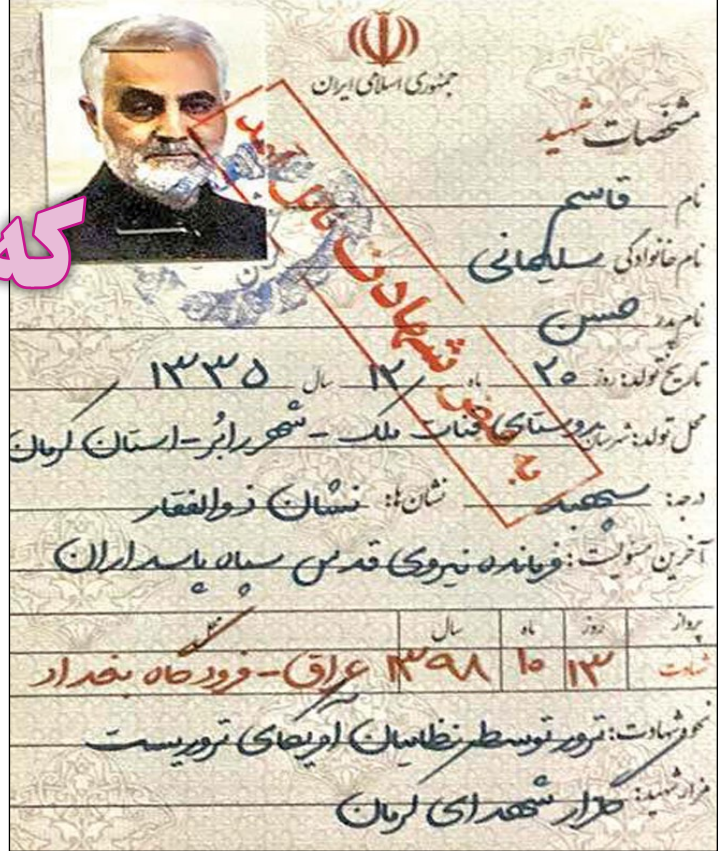 جمهوری اسلامی ایران
مشخصات شهید
نام قاسم
نام خانوادگی سلیمانی
نام پدر حسن
تاریخ تولد: روز ۲۰ ماه ۱۲ سال ۱۳۳۵
محل تولد: شهرستان روستای قنات ملک - شهر رابُر - استان کرمان
درجه: سپهبد نشان ها: نشان ذوالفقار
آخرین مسئولیت: فرمانده نیروی قدس سپاه پاسداران
پرواز روز ماه سال محل
شهادت ۱۳ ۱۰ ۱۳۹۸ عراق - فرودگاه بغداد
نحوه شهادت: ترور توسط نظامیان آمریکای تروریست
مزار شهید: گلزار شهدای کرمان
به فیض شهادت نائل آمد
که